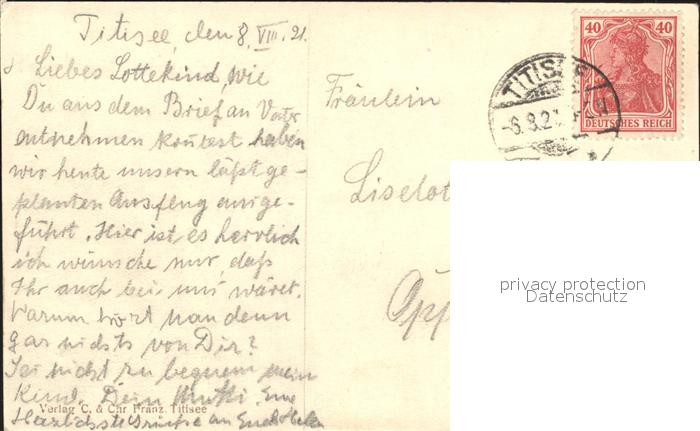 Titisee, den 8. VIII. 21.
Liebes Lottekind, wie
Du aus dem Brief an Vater
entnehmen konntest haben
wir heute unsern läßt ge-
planten Ausflug ausge-
führt. Hier ist es herrlich
ich wünsche nur, daß
Ihr auch bei uns wäret.
Warum hört man denn
gar nichts von Dir?
Sei nicht zu bequem mein
Kind. Dein Mutti.
Herzlichste Grüße an
Verlag C. & Chr. Franz, Titisee
Fräulein
Liselot
Opp
40 40
DEUTSCHES REICH
TITISEE
privacy protection
Datenschutz